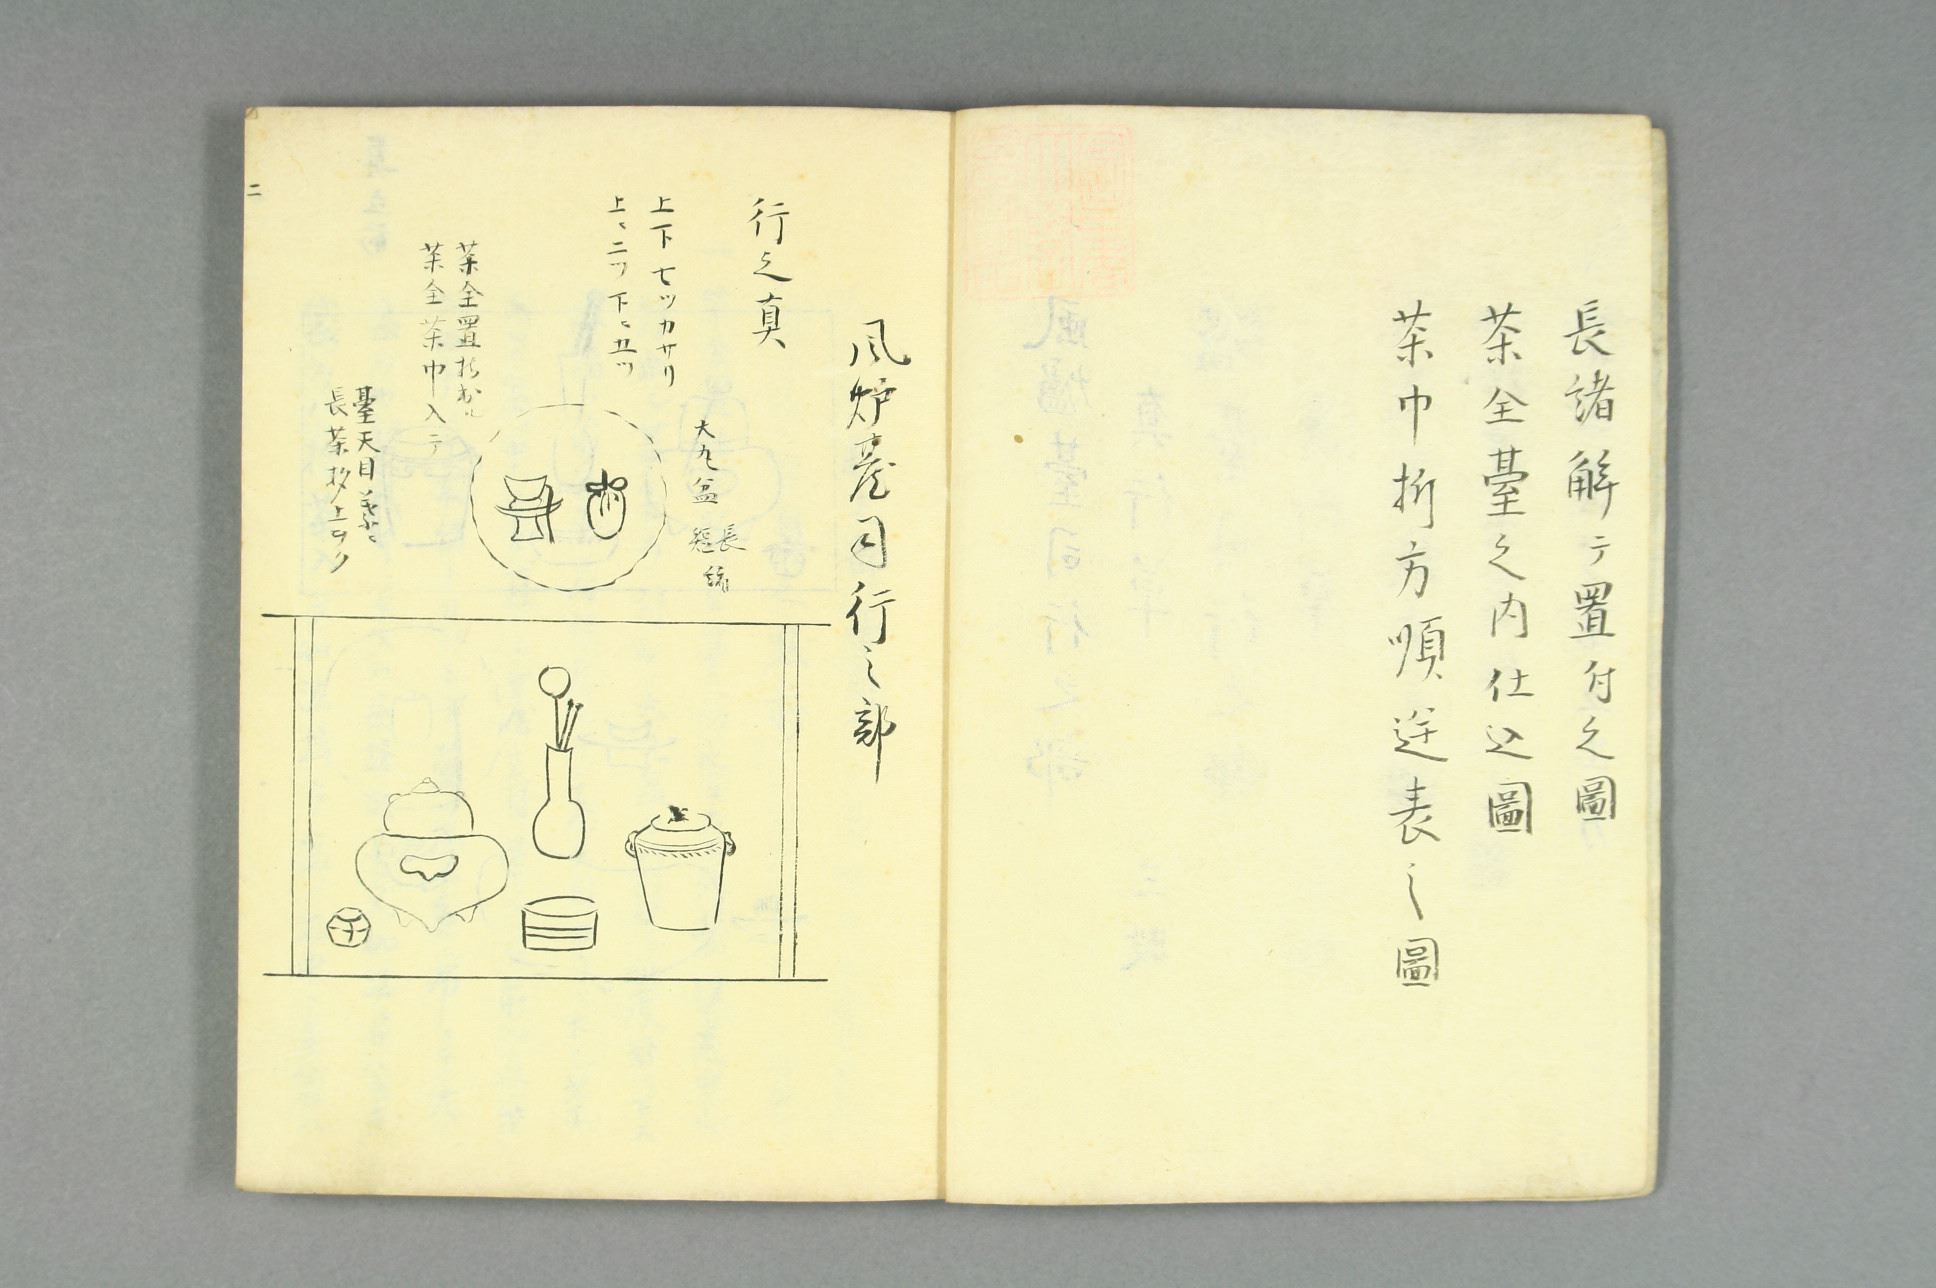 長諸解テ置付之圖
茶全臺之内仕込圖
茶巾折方順逆表之圖
風炉臺司行之部
行之真
上下七ツカサリ
上ニ二ツ下ニ五ツ
大丸盆
長
緒
茶全置
茶全茶巾入テ
臺天目
長茶杓上ニ
二